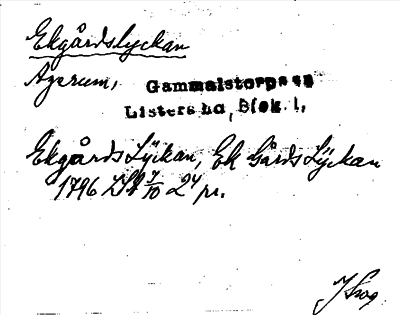 Ekgårdslyckan
Agerum, Gammalstorps sn
Listers hd, Blek. l.
Ekgårds Lÿckan, Ek Gårds Lÿckan
1796 LSk 7/10 24 pr.